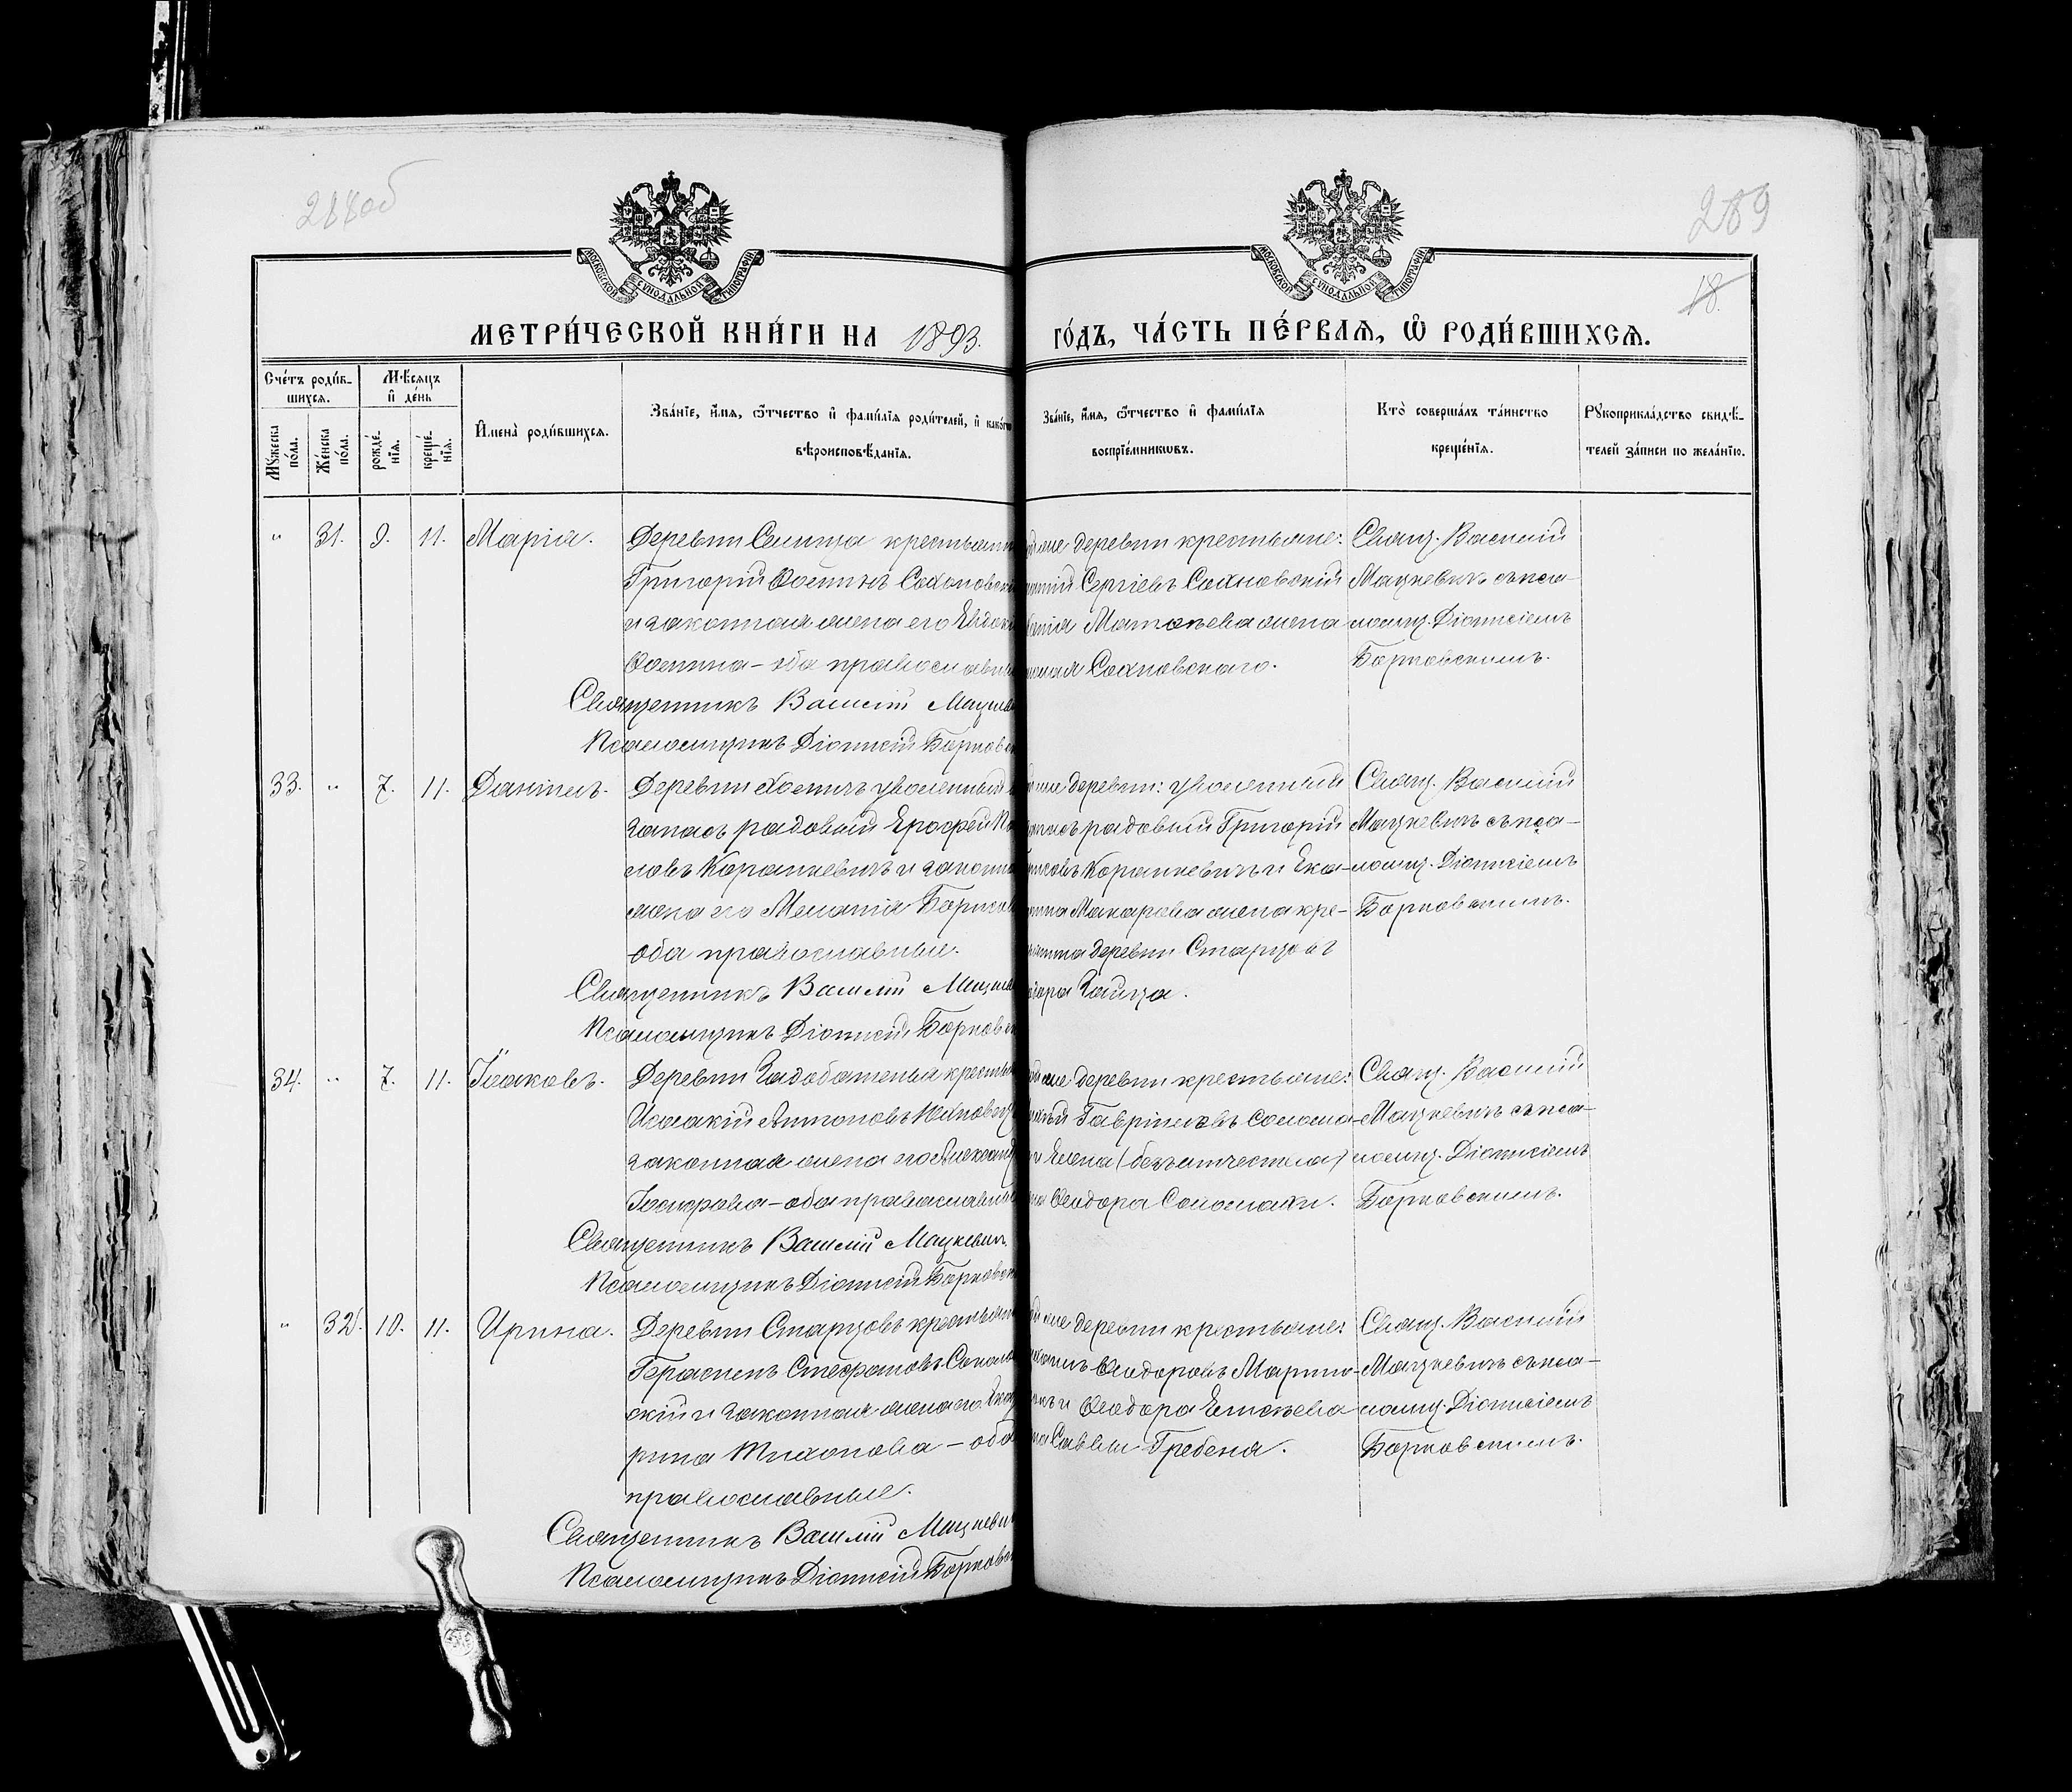 288об
289
18.
МОСКОВСКОЙ СУНОДАЛЬНОЙ ТИПОГРАФІИ
МОСКОВСКОЙ СУНОДАЛЬНОЙ ТИПОГРАФІИ
МЕТРИ́ЧЕСКОЙ КНИ́ГИ НА 1893.
ГО́ДЪ, ЧА́СТЬ ПЕ́РВАѦ, Ѿ РОДИ́ВШИХСѦ.
Сче́тъ роди́в-
шихсѧ.
Мѣсѧцъ
и де́нь
Мꙋ́жеска по́ла.
Же́нска по́ла.
рожде́-нїѧ.
креще́-нїѧ.
И҆мена̀ роди́вшихсѧ.
Зва́нїе, и҆́мѧ, ѻ҆́тчество и҆ фами́лїѧ роди́телей, и҆ како́гѡ
вѣроисповѣ́данїѧ.
Зва́нїе, и҆́мѧ, ѻ҆́тчество и҆ фами́лїѧ
воспрїе́мникѡвъ.
Кто̀ соверша́лъ та́инство
креще́нїѧ.
Рꙋкоприкла́дство свидѣ́-
телей за́писи по жела́нїю.
" 31. 9. 11. Марія.
Деревни Селища крестьянин
Григорій Сохновск
и законная жена его Евдок
оба православн
Священникъ Василій Мацкев
Псаломщикъ Діонисій Борковск
деревни крестьяне:
Сергіевъ Сахновскій
Матѳѣева жена
Сахновскаго.
Свящ. Василій
Мацкевичъ съ пса-
ломщ. Діонисіемъ
Борковскимъ.
33. " 7. 11. Даніилъ.
Деревни уволенный
запасъ рядовый Ерофей Па
ловъ и законна
жена его Меланія Борисов
оба православные.
Священникъ Василій Мацкев
Псаломщикъ Діонисій Борковск
деревни: уволенный
рядовый Григорій
и Ека-
Макарова жена кре-
деревни Старцовъ
Зайца.
Свящ. Василій
Мацкевичъ съ пса-
ломщ. Діонисіемъ
Борковскимъ.
34. " 7. 11. Іаковъ.
Деревни крестьян
Исаакій Антоновъ
законная жена его Александ
Іосифова – оба православны
Священникъ Василій Мацкевичъ.
Псаломщикъ Діонисій Борковск
деревни крестьяне:
Гавріиловъ Солома-
Елена (безъ отчества)
Ѳеодора Соломахи.
Свящ. Василій
Мацкевичъ съ пса-
ломщ. Діонисіемъ
Борковскимъ.
" 32. 10. 11. Ирина.
Деревни Старцовъ крестьян
Герасимъ Стефановъ
скій и законная жена его Екате
рина Тихонова – оба
православные.
Священникъ Василій Мацкеви
Псаломщикъ Діонисій Борковск
деревни крестьяне:
Ѳеодоровъ Марти-
и Ѳеодора Елисѣева
Саввы Гребеня.
Свящ. Василій
Мацкевичъ съ пса-
ломщ. Діонисіемъ
Борковскимъ.